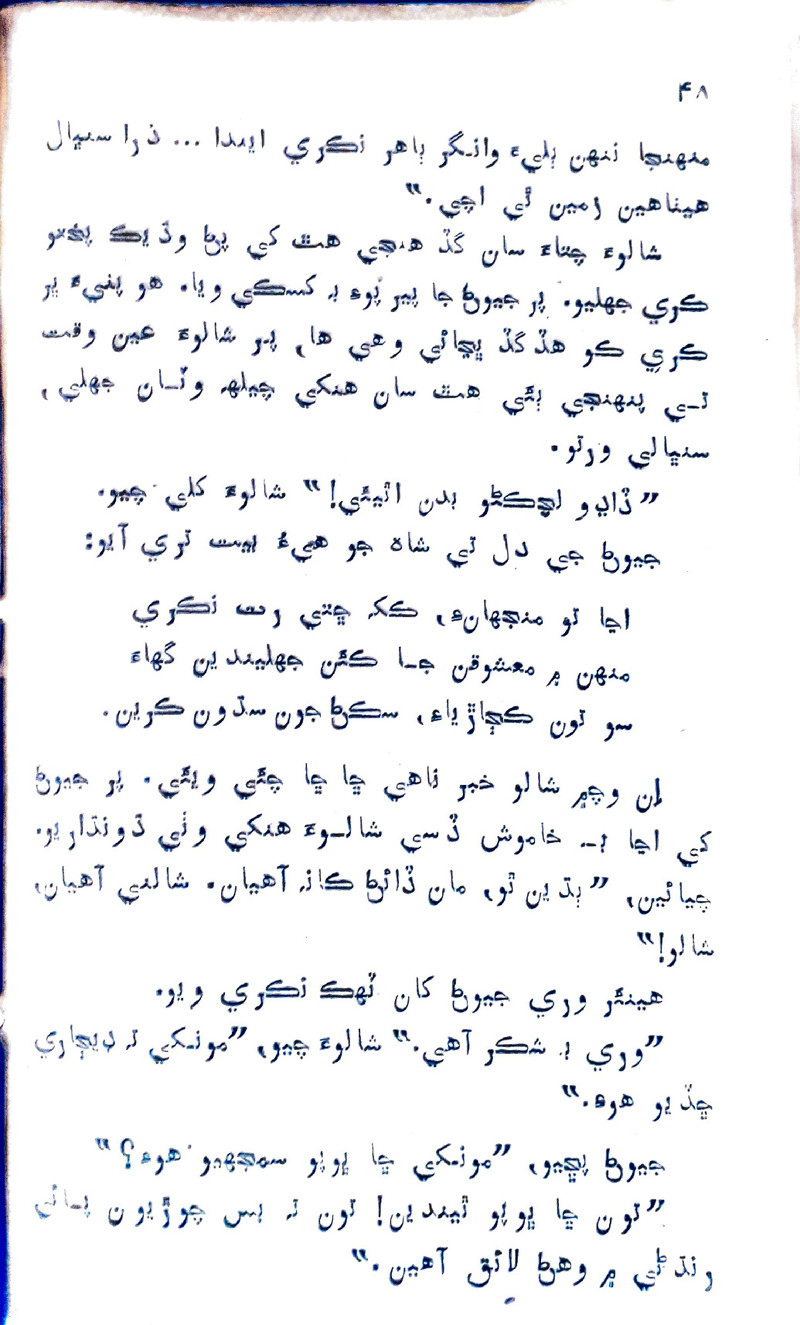 ۴۸
منهنجا ننهن ٻليءَ وانگر ٻاهر نڪري ايندا ... ذرا سنڀال
هيٺاهين زمين ٿي اچي.“
شالوءَ چتاءَ سان گڏ هنجي هٿ کي پڻ وڌيڪ پختو
ڪري جهليو. پر جيوڻ جا پير پوءِ بہ کسڪي ويا. هو پٺيءَ ڀر
ڪري ڪو هڏ گڏ ڀڃائي وهي ها، پر شالوءَ عين وقت
تي پنهنجي ٻئي هٿ سان هنکي چيلهہ وٽان جهلي،
سنڀالي ورتو.
”ڏاڍو لچڪڻو بدن اٿيئي!“ شالوءَ کلي چيو.
جيوڻ جي دل تي شاهه جو هيءُ بيت تري آيو:
اڃا تو منجهانءِ، ڪکہ چڀي رت نڪري
منهن ۾ معشوقن جا ڪئن جهليندين گهاءَ
سو تون ڪڄاڙياءِ، سڪڻ جون سڌون ڪرين.
اِن وچ۾ شالو خبر ناهي ڇا ڇا چئي ويئي. پر جيوڻ
کي اڃا بہ خاموش ڏسي شالوءَ هنکي وٺي ڌونڌاريو.
چيائين، ”ٻڌين ٿو، مان ڏائڻ ڪانہ آهيان. شالني آهيان،
شالو!“
هينئر وري جيوڻ کان ٽهڪ نڪري ويو.
”وري بہ شڪر آهي.“ شالوءَ چيو، ”مونکي تہ ڊيڄاري
ڇڏيو هوءِ.“
جيوڻ پڇيو، ”مونکي ڇا ڀوپو سمجهيو هوءِ؟“
”تون ڇا ڀوپو ٿيندين! تون تہ بس چوڙيون پائي
رنڌڻي ۾ وهڻ لائق آهين.“